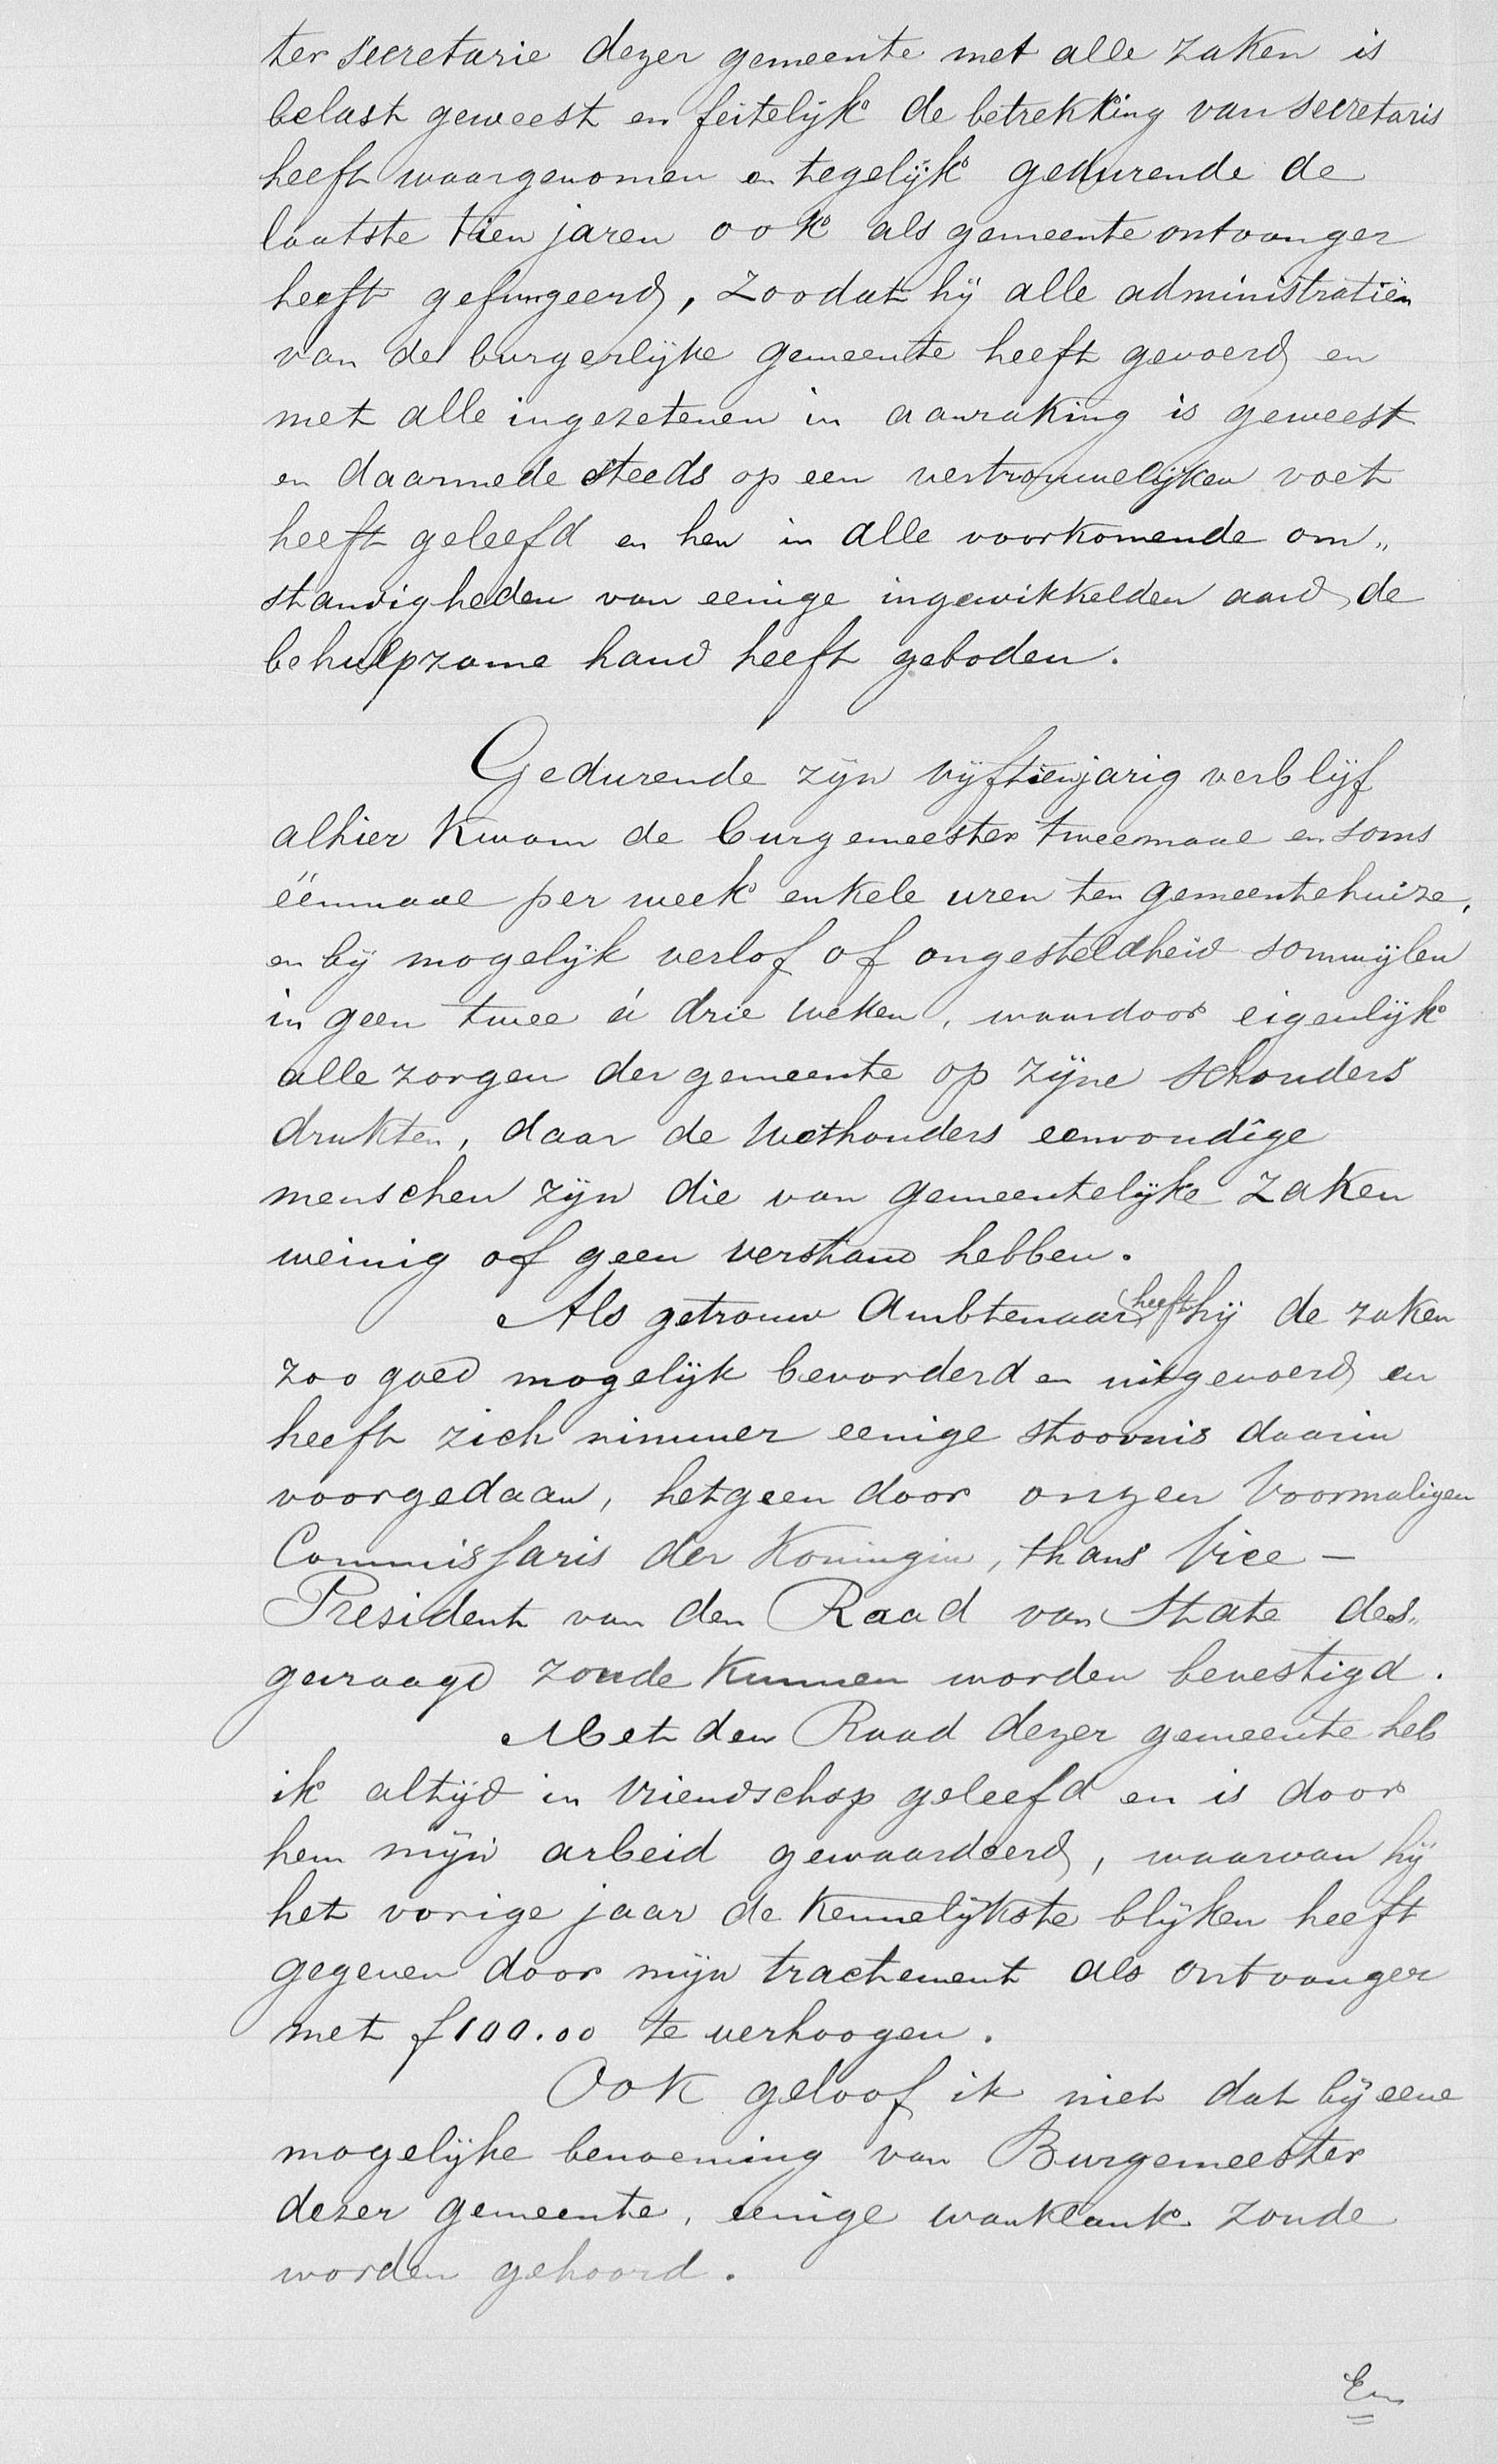 ter secretarie dezer gemeente met alle zaken is
belast geweest en feitelijk de betrekking van secretaris
heeft waargenomen en tegelijk gedurende de
laatste tien jaren ook als gemeente ontvanger
heeft gefungeerd, zoodat hij alle administratiën
van de burgerlijke gemeente heeft gevoerd en
met alle ingezetenen in aanraking is geweest
en daarmede steeds op een vertrouwelijken voet
heeft geleefd en hen in alle voorkomende om„
standigheden van eenige ingewikkelden aard de
behulpzame hand heeft geboden.
Gedurende zijn vijftienjarig verblijf
alhier kwam de burgemeester tweemaal en soms
éénmaal per week enkele uren ten gemeentehuize,
en bij mogelijk verlof of ongesteldheid somwijlen
in geen twee á drie weken, waardoor eigenlijk
alle zorgen der gemeente op zijne schouders
drukten, daar de Wethouders eenvoudige
menschen zijn die van gemeentelijke zaken
weinig of geen verstand hebben.
Als getrouw Ambtenaar heeft hij de zaken
zoo goed mogelijk bevorderd en uitgevoerd en
heeft zich nimmer eenige stoornis daarin
voorgedaan, hetgeen door onzen Voormaligen
Commissaris der Koningin, thans Vice-
President van den Raad van State des„
gevraagd zoude kunnen worden bevestigd.
Met den Raad dezer gemeente heb
ik altijd in vriendschap geleefd en is door
hem mijn arbeid gewaardeerd, waarvan hij
het vorige jaar de kennelijkste blijken heeft
gegeven door mijn tractement als ontvanger
met f 100.00 te verhoogen.
Ook geloof ik niet dat bij eene
mogelijke benoeming van Burgemeester
dezer gemeente, eenige wanklank zoude
worden gehoord.
En